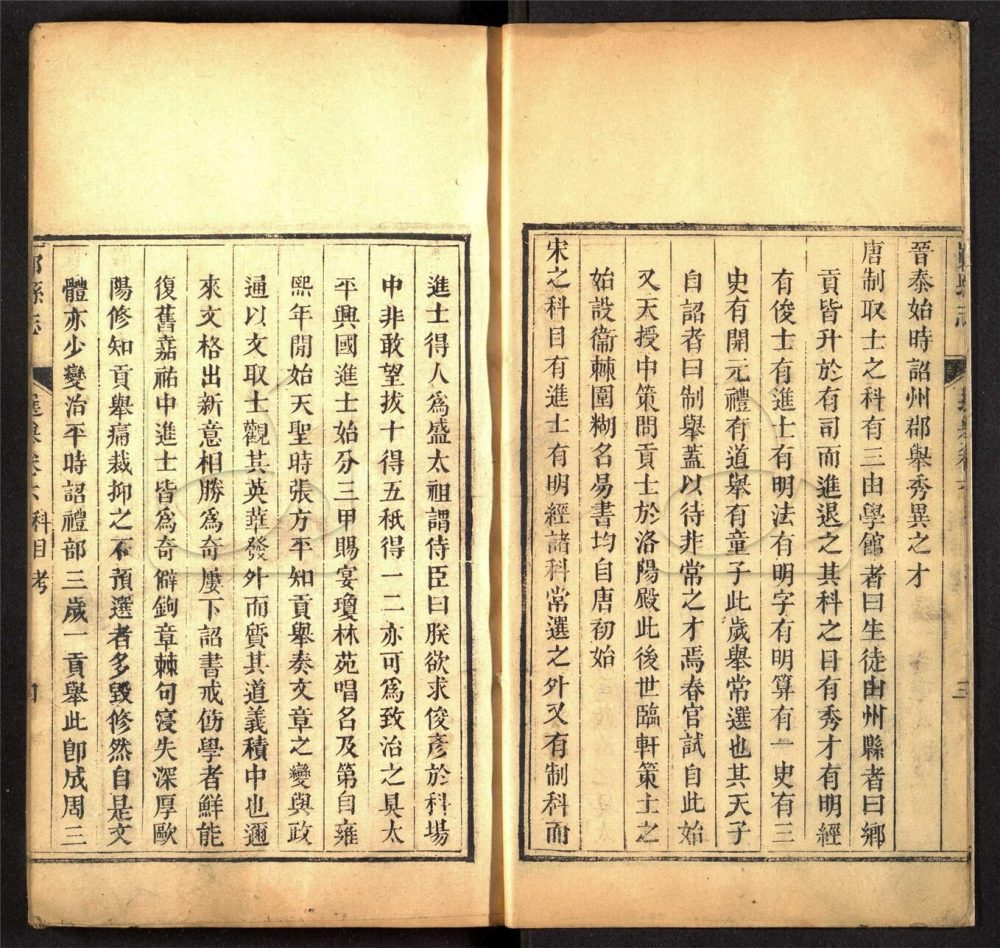 晉泰始時詔州郡舉秀異之才
唐制取士之科有三由學館者曰生徒由州縣者曰鄉
貢皆升於有司而進退之其科之目有秀才有明經
有俊士有進士有明法有明字有明算有一史有三
史有開元禮有道舉有童子此歲舉常選也其天子
自詔者曰制舉蓋以待非常之才焉春官試自此始
又天授中策問貢士於洛陽殿此後世臨軒策士之
始設衞棘圍糊名易書均自唐初始
宋之科目有進士有明經諸科常選之外又有制科而
進士得人爲盛太祖謂侍臣曰朕欲求俊彥於科場
中非敢望拔十得五秖得一二亦可爲致治之具太
平興國進士始分三甲賜宴瓊林苑唱名及第自雍
熙年閒始天聖時張方平知貢舉奏文章之變與政
通以文取士觀其英華發外而質其道義積中也邇
來文格出新意相勝爲奇屢下詔書戒飭學者鮮能
復舊嘉祐中進士皆爲奇僻鉤章棘句寖失深厚歐
陽修知貢舉痛裁抑之不預選者多毀修然自是文
體亦少變治平時詔禮部三歲一貢舉此卽成周三
縣志
選舉卷六
科目考